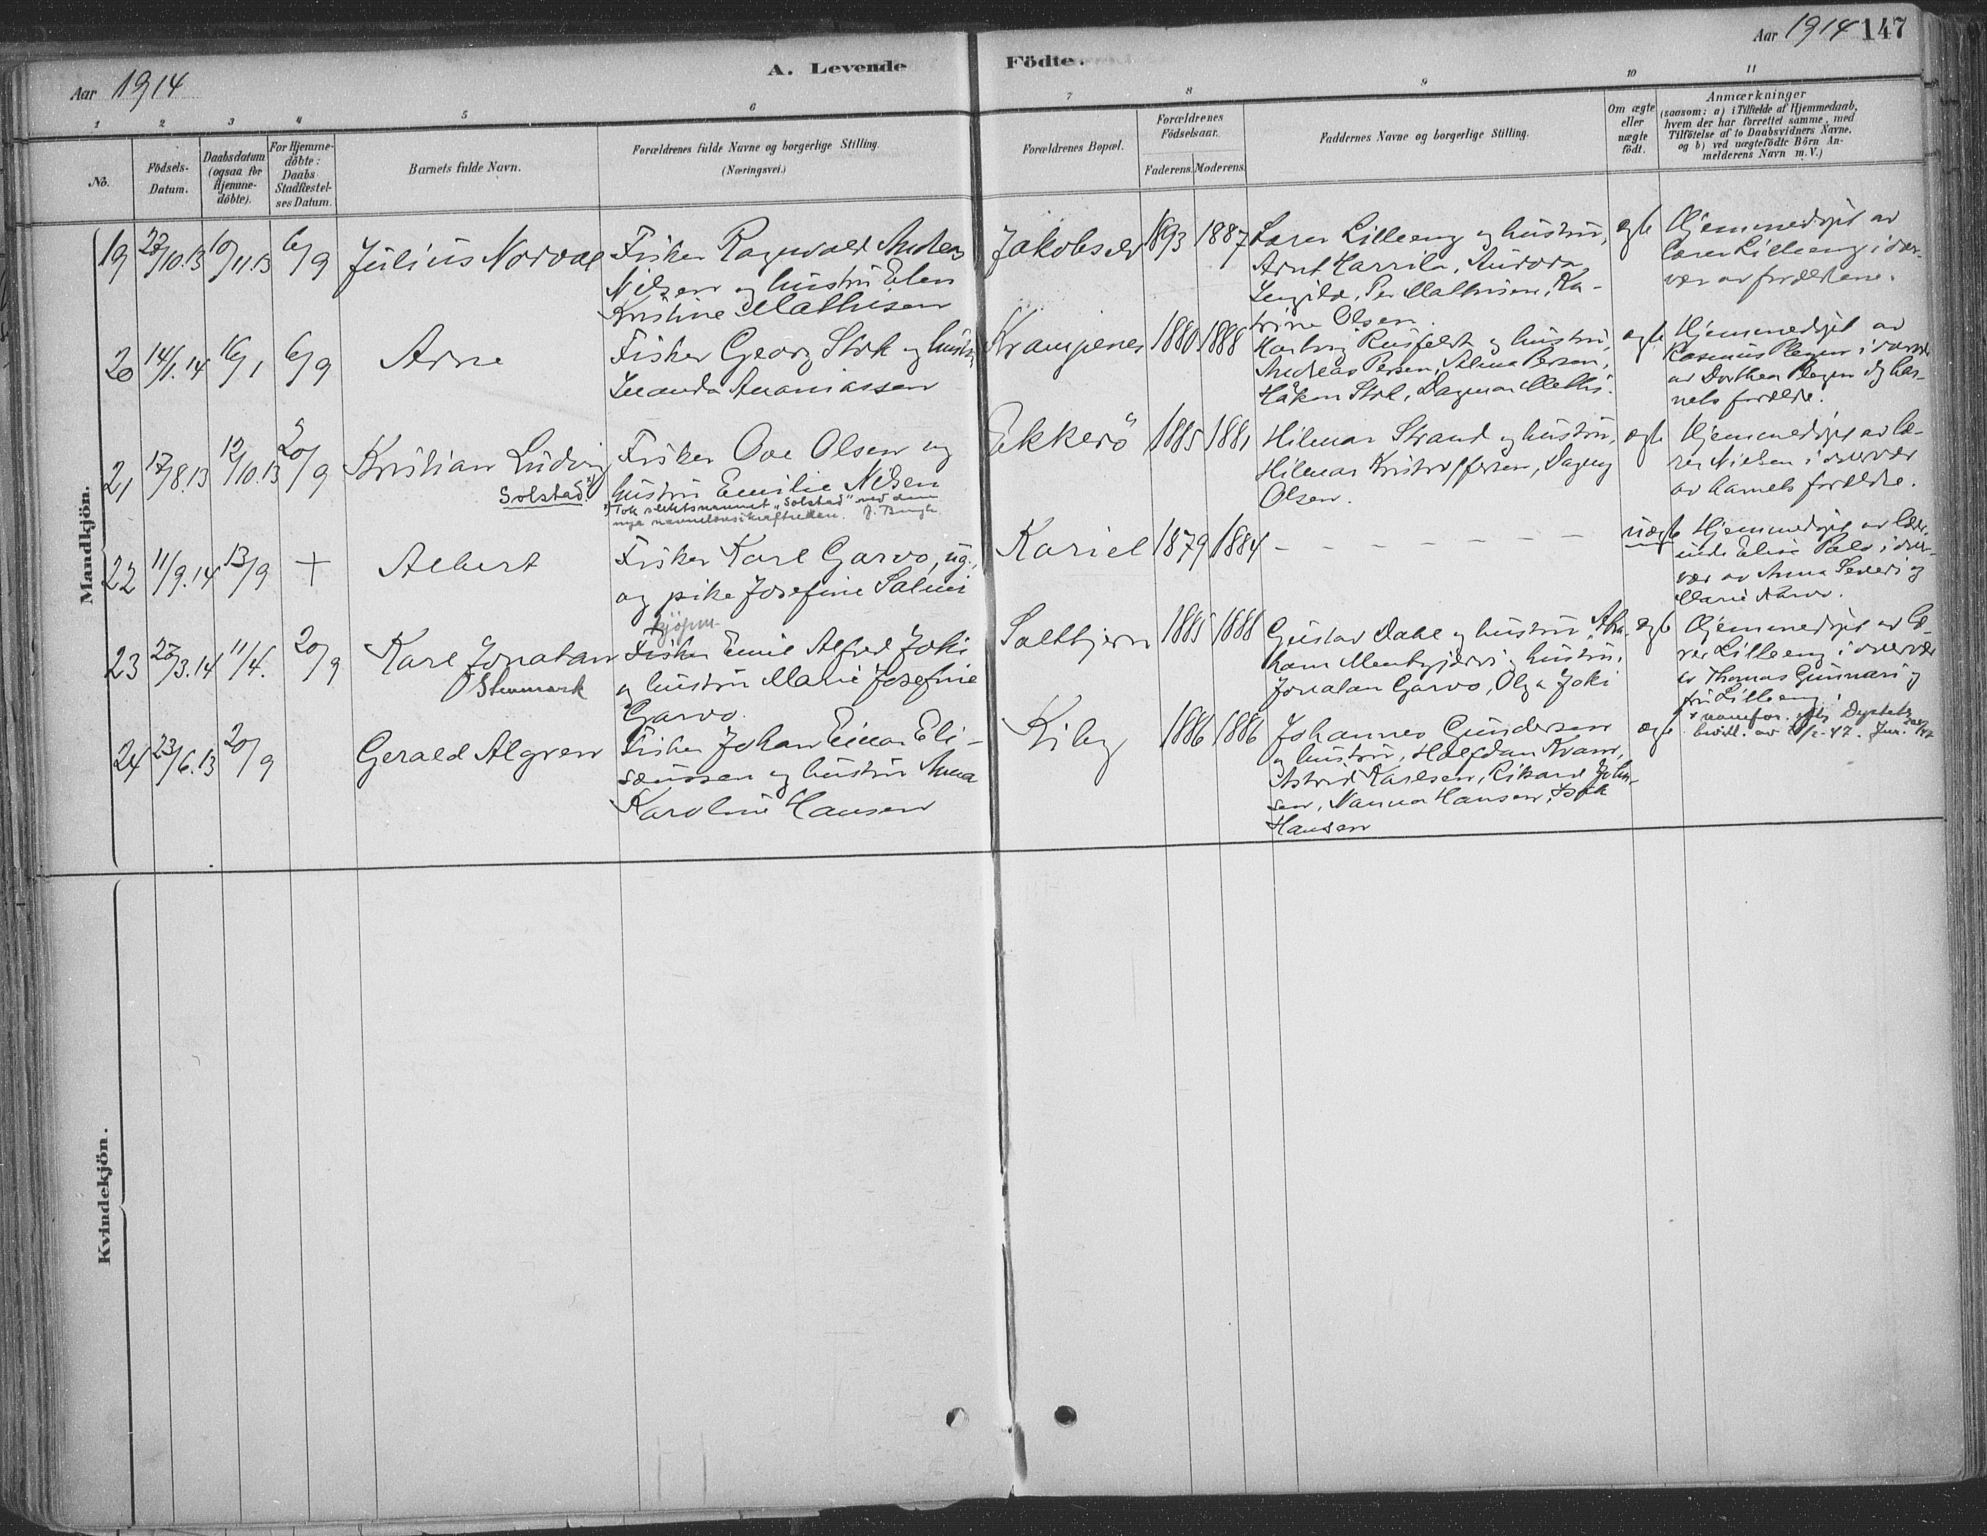 Aar 1914
A. Levende
Födte.
Aar 1914 147
1 2 3 4 5 6 7 8 9 10 11
No.
Födsels-
Datum.
Daabsdatum
(ogsaa for
Hjemme-
döbte).
For Hjemme-
döbte:
Daabs
Stadfæstel-
ses Datum.
Barnets fulde Navn.
Forældrenes fulde Navne og borgerlige Stilling.
(Næringsvei.)
Forældrenes Bopæl.
Forældrenes
Födselsaar.
Faderens. Moderens.
Faddernes Navne og borgerlige Stilling.
Om ægte
eller
uægte
födt.
Anmærkninger
(saasom: a) i Tilfælde af Hjemmedaab,
hvem der har forrettet samme, med
Tilföielse af to Daabsvidners Navne,
og b) ved uægtefödte Börn An-
melderens Navn m. V.)
Mandkjön.
19 23/10.13 10/11.13 6/9 Julius Norval
Fisker Ragnvald
Nilsen og hustru Elen
Kristine Mathisen
Jakobselv 1893 1887
Lærer Lilleeng og hustru,
Arnt Harrila, Aurora
Per Mathisen, Ka-
trine Olsen.
egte
Hjemmedöpt av
lærer Lilleeng i over-
vær av forældrene.
20 14/1.14 16/1 6/9 Arne
Fisker Georg Stok og hustru
Ananiassen
Krampenes 1880 1888
Rusfeldt og hustru,
Andreas Persen, Alma Persen,
Håkon Stok, Dagmar
egte
Hjemmedöpt av
Rasmus i overvær
av Dorthea og bar-
nets forældre.
21 17/8.13 12/10.13 20/9 Kristian Ludvig
Solstad
Fisker Ove Olsen og
hustru Emilie Nilsen
Tok slektsnavnet "Solstad" ved den
nye navnelovs ikrafttreden.
Ekkerö 1885 1881
Hilmar Strand og hustru,
Hilmar Kristoffersen, Dagny
Olsen.
egte
Hjemmedöpt av læ-
rer Nielsen i overvær
av barnets forældre.
22 11/9.14 13/9 + Albert
Fisker Karl Garvo, ug.,
og pike Josefine Salmi
Kariel 1879 1884
- - - - - - -
uegte
Hjemmedöpt av
Elise Palo i over-
vær av Anna og
Marie
23 27/3.14 11/4. 20/9 Karl Jonatan
Stenmark
Fisker Emil Alfred Joki
og hustru Marie Josefine
Garvo.
Saltbjern 1885 1888
Gustav Dahl og hustru, Abra-
ham og hustru,
Jonatan Garvo, Olga Joki
egte
Hjemmedöpt av læ-
rer Lilleeng i overvær
av Thomas Gunnari og
fru Lilleeng.
24 23/6.13 20/9 Gerald Algren
Fisker Johan Einar Eli-
sæussen og hustru Anna
Karoline Hansen
Kiby 1886 1886
Johannes Gundersen
og hustru, Halfdan Kvam,
Astrid Karlsen, Rikard Johan-
sen, Nanna Hansen,
Hansen
egte
Kvindekjön.